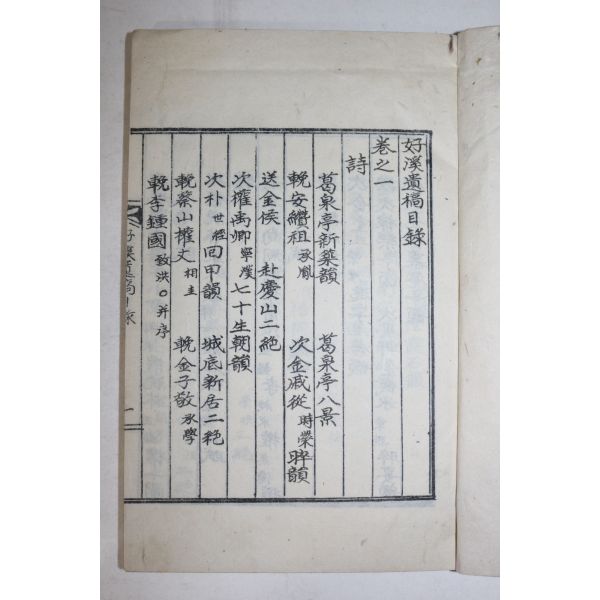 好溪遺稿目錄
卷之一
詩
葛泉亭新築韻 葛泉亭八景
輓安纘祖承鳳 次金戚從時榮晬韻
送金侯 赴慶山二絶
次權禹卿寧濮七十生朝韻
次朴世經回甲韻 城底新居二絶
輓蔡山權丈相圭 輓金子敬承學
輓李鍾國致洪○并序
好溪遺稿目錄
一